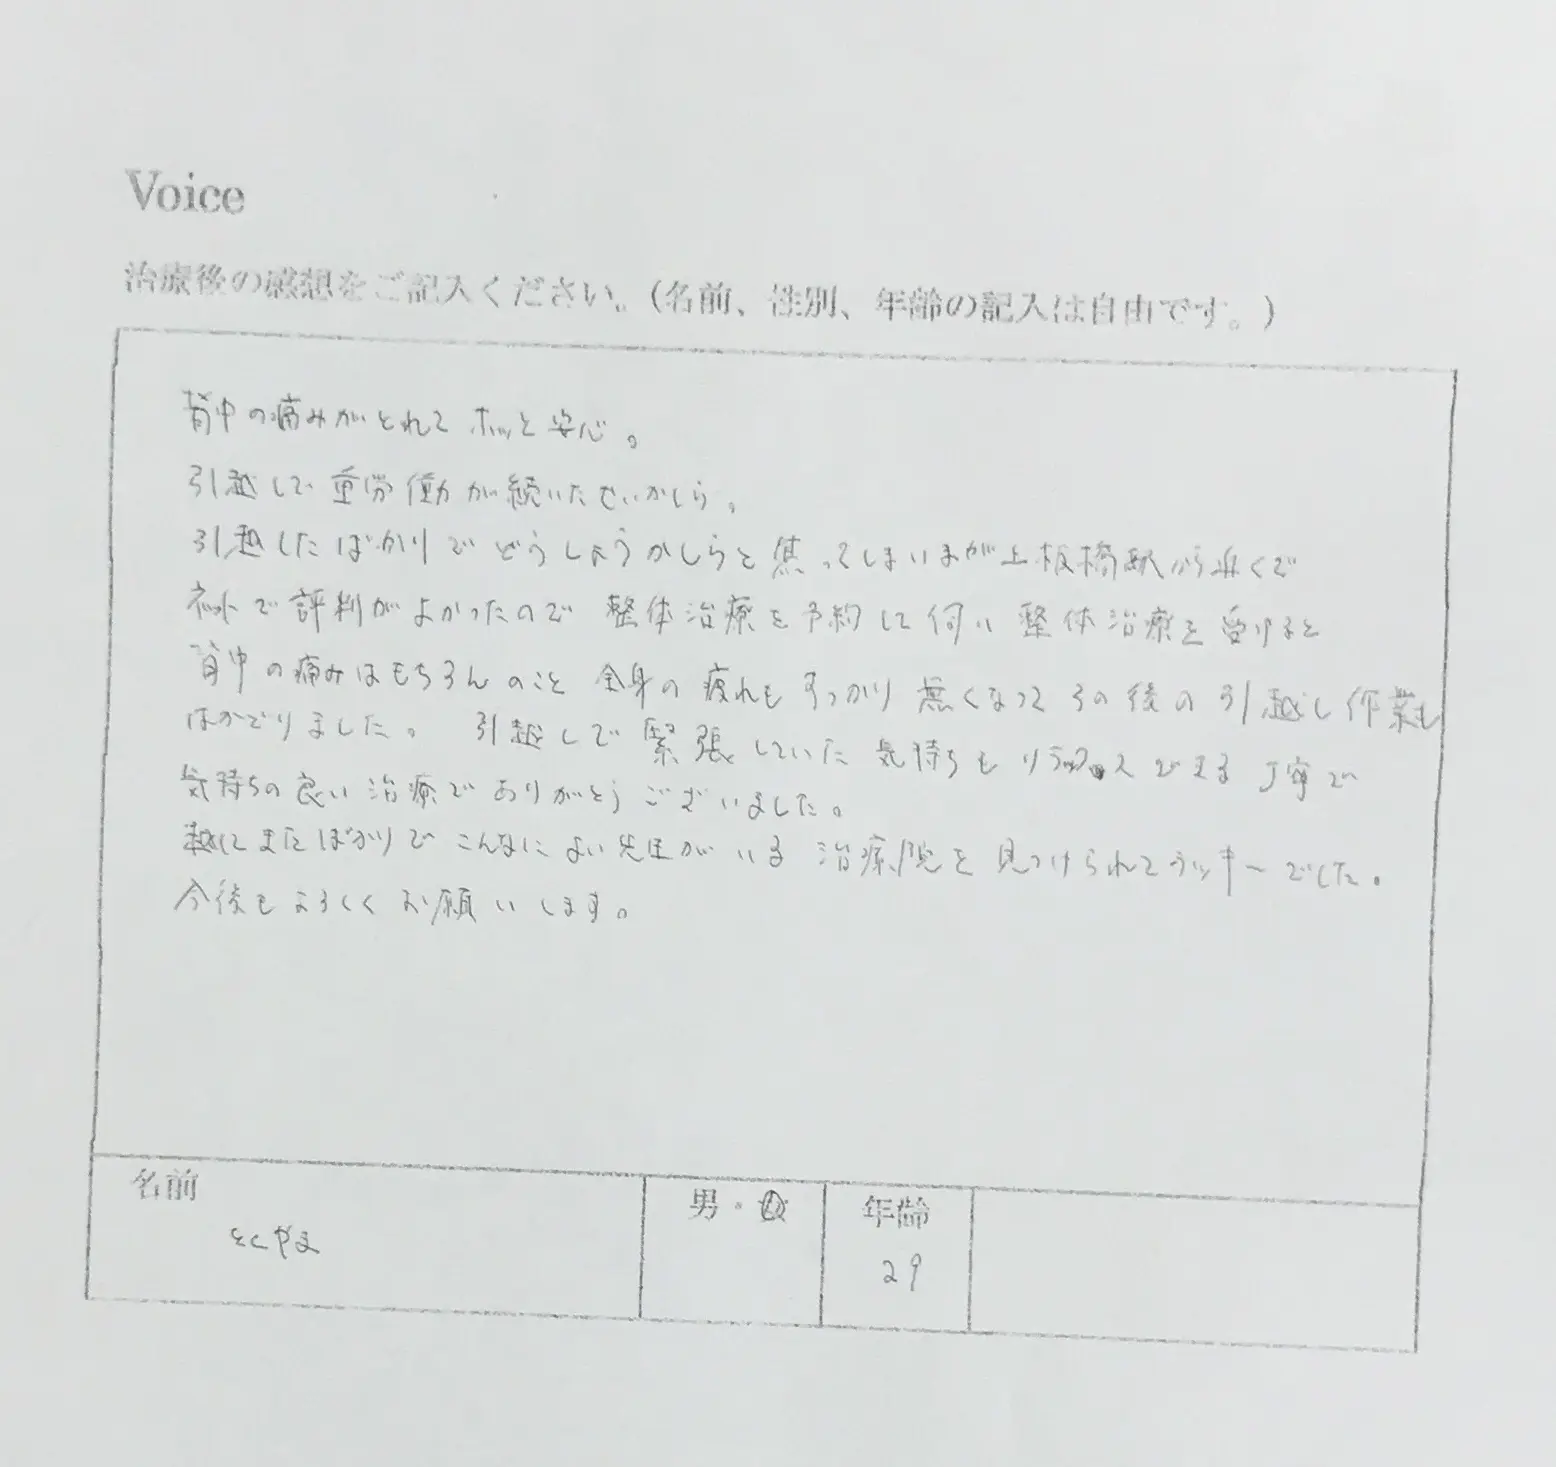 Voice
治療後の感想をご記入ください。(名前、性別、年齢の記入は自由です。)
背中の痛みがとれて ホッと安心。
引越しで重労働が続いたせいかしら。
引越したばかりで どうしようかしらと焦ってしまいまが上板橋駅から近くで
ネットで評判がよかったので 整体治療を予約して伺い 整体治療を受けると
背中の痛みはもちろんのこと 全身の疲れもすっかり無くなって その後の引越し作業も
はかどりました。 引越しで緊張していた気持ちもリラックスできる丁寧で
気持ちの良い治療でありがとうございました。
越してきたばかりで こんなによい先生がいる 治療院を見つけられてラッキーでした。
今後もよろしくお願いします。
名前
男・女
年齢
とくやま
29